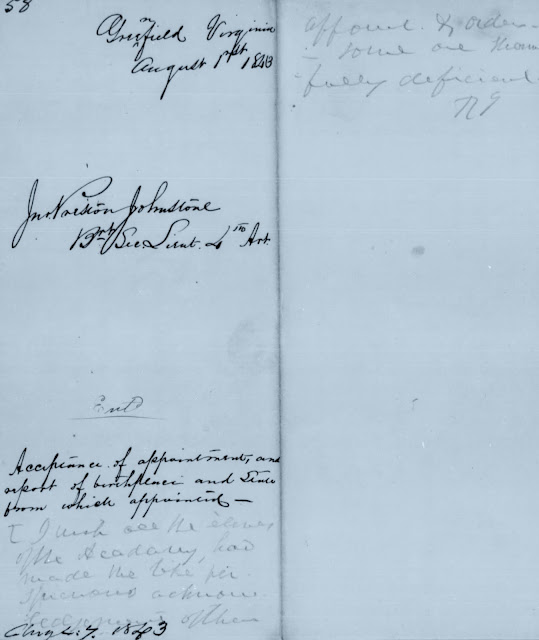 58
Greenfield Virginia
August 1st 1843
Jno Preston Johnstone
Bvt. Sec Lieut. 4th Art.
Entd
Acceptance of appointment, and
report of birthplace and State
from which appointed —
I wish all the élèves
of the Academy, had
made the like per-
spicuous acknow-
ledgement of their
Aug 4. 1843
appoint. & orders
— some are
fully deficient